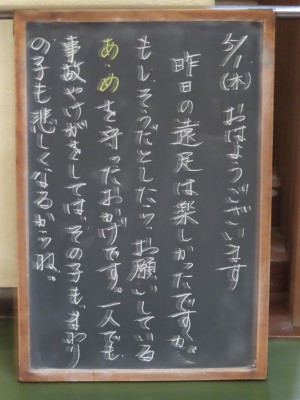 5/1(水) おはようございます
昨日の遠足は楽しかったですか。
もし、そうだとしたら、お願いしている
あ・めを守ったおかげです。一人でも
事故やけがをしては、その子も、まわり
の子も悲しくなるからね。